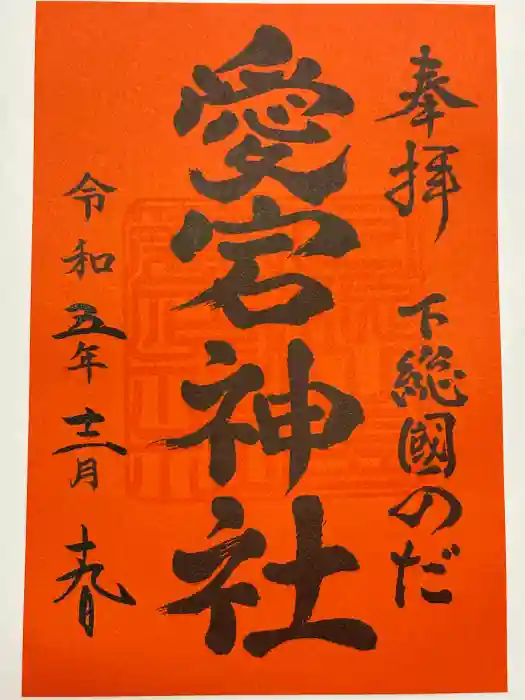 奉拝　下総國のだ
愛宕神社
令和五年十二月十九日